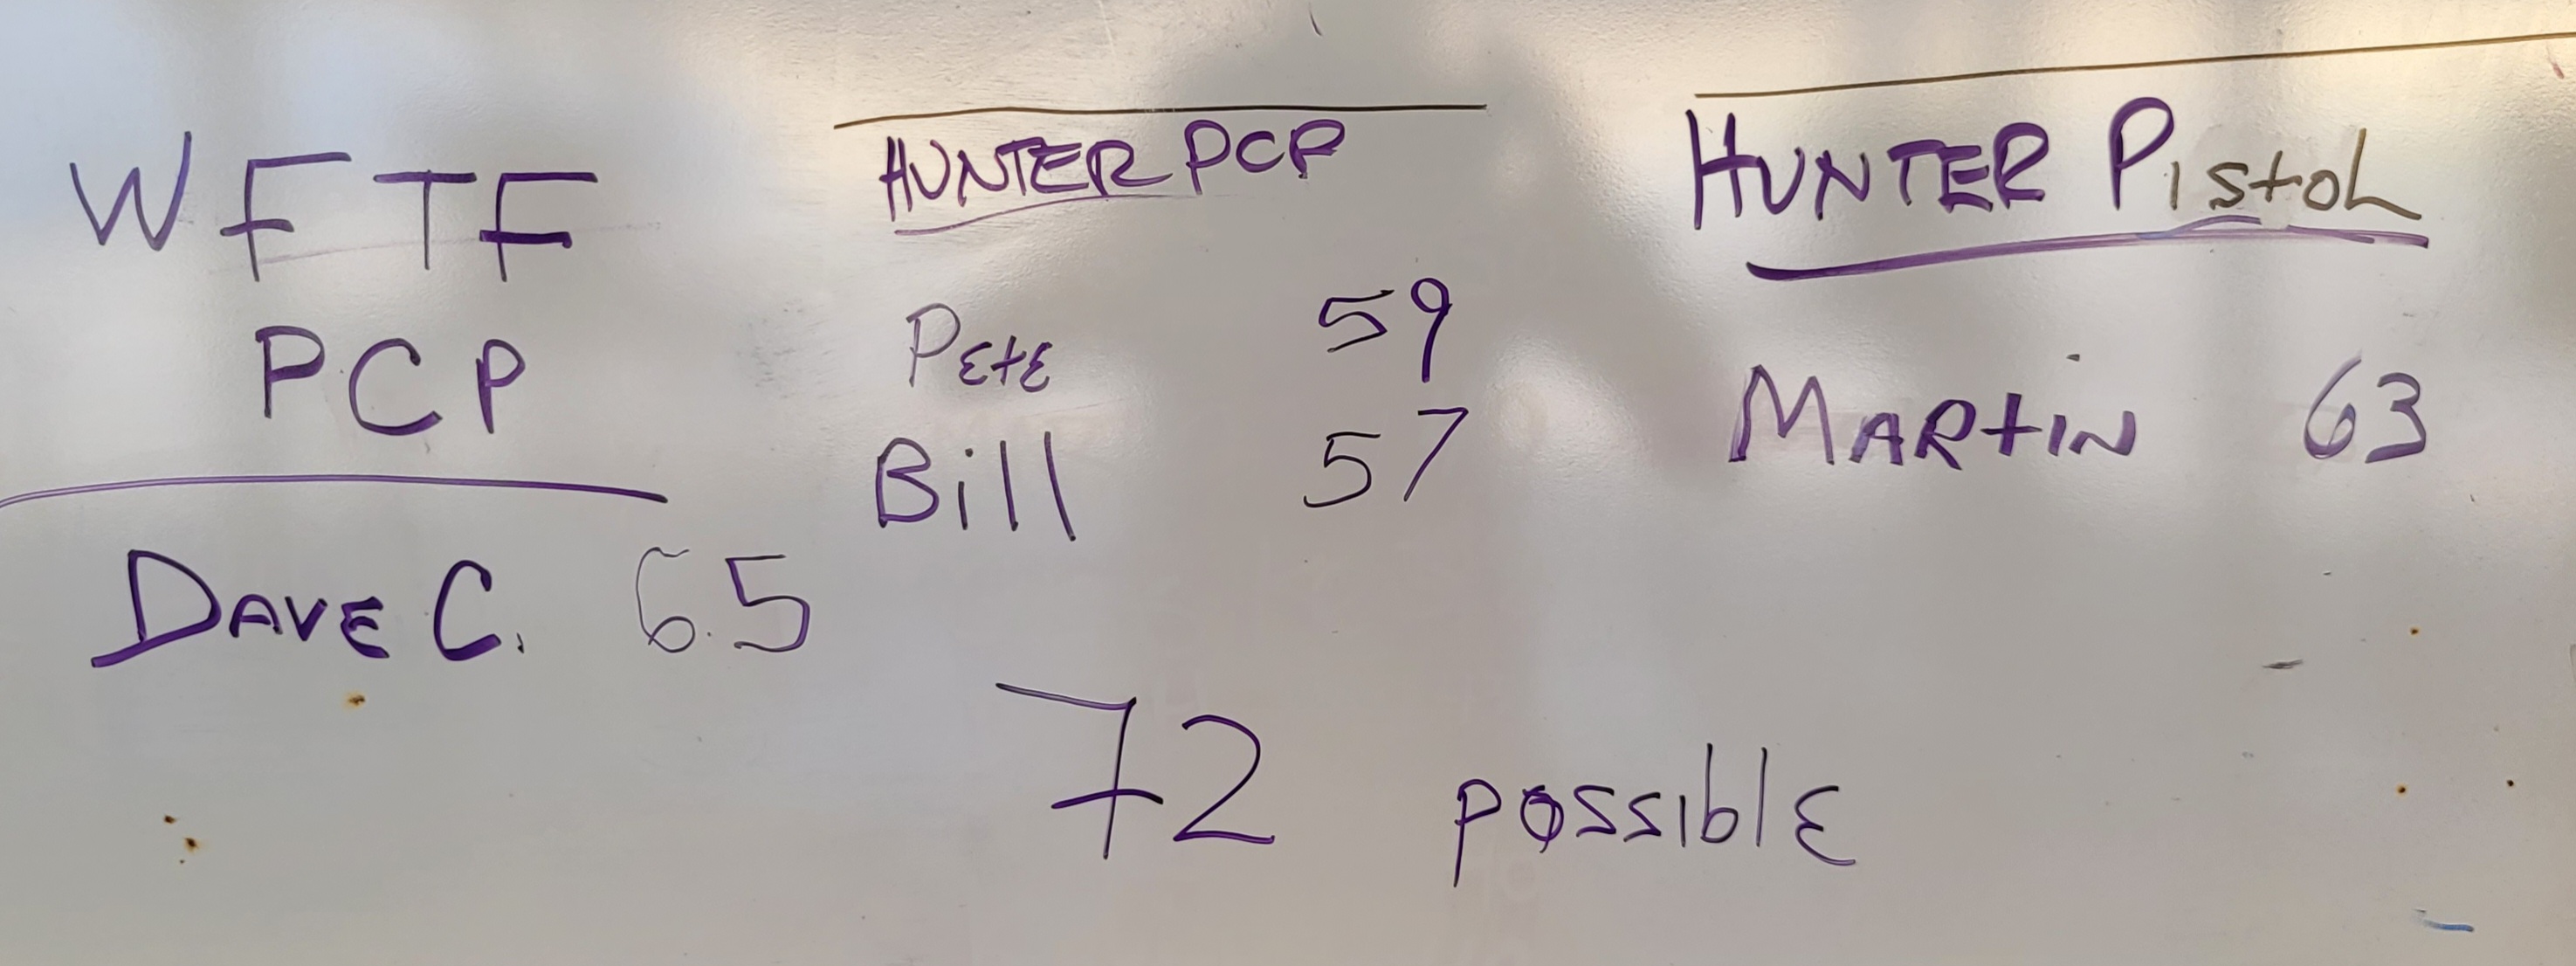 WFTF
PCP
DAVE C. 65
HUNTER PCP
PEtE 59
Bill 57
HUNTER PistoL
MARtiN 63
72 possiblE